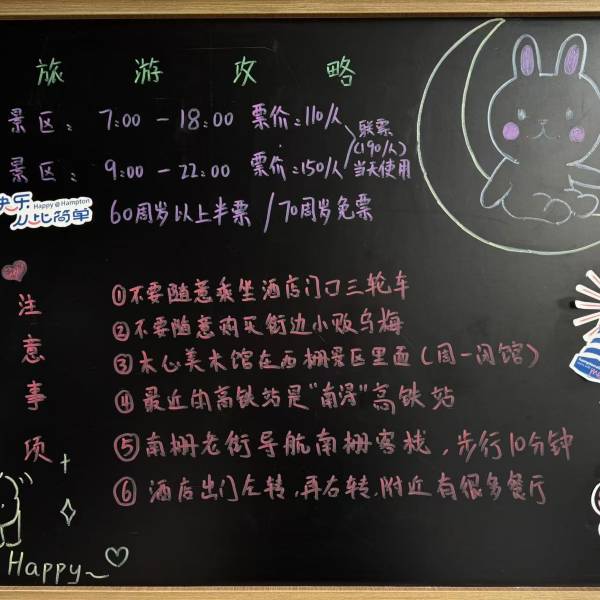 旅游攻略
景区: 7:00 - 18:00 票价:110/人
景区: 9:00 - 22:00 票价:150/人
联票
(190/人)
当天使用
快乐
Happy@Hampton
从比简单
60周岁以上半票 / 70周岁免票
注意事项
①不要随意乘坐酒店门口三轮车
②不要随意购买街边小贩乌梅
③木心美术馆在西栅景区里面(周一闭馆)
④最近的高铁站是"南浔"高铁站
⑤南栅老街导航南栅客栈,步行10分钟
⑥酒店出门左转,再右转,附近有很多餐厅
Happy~